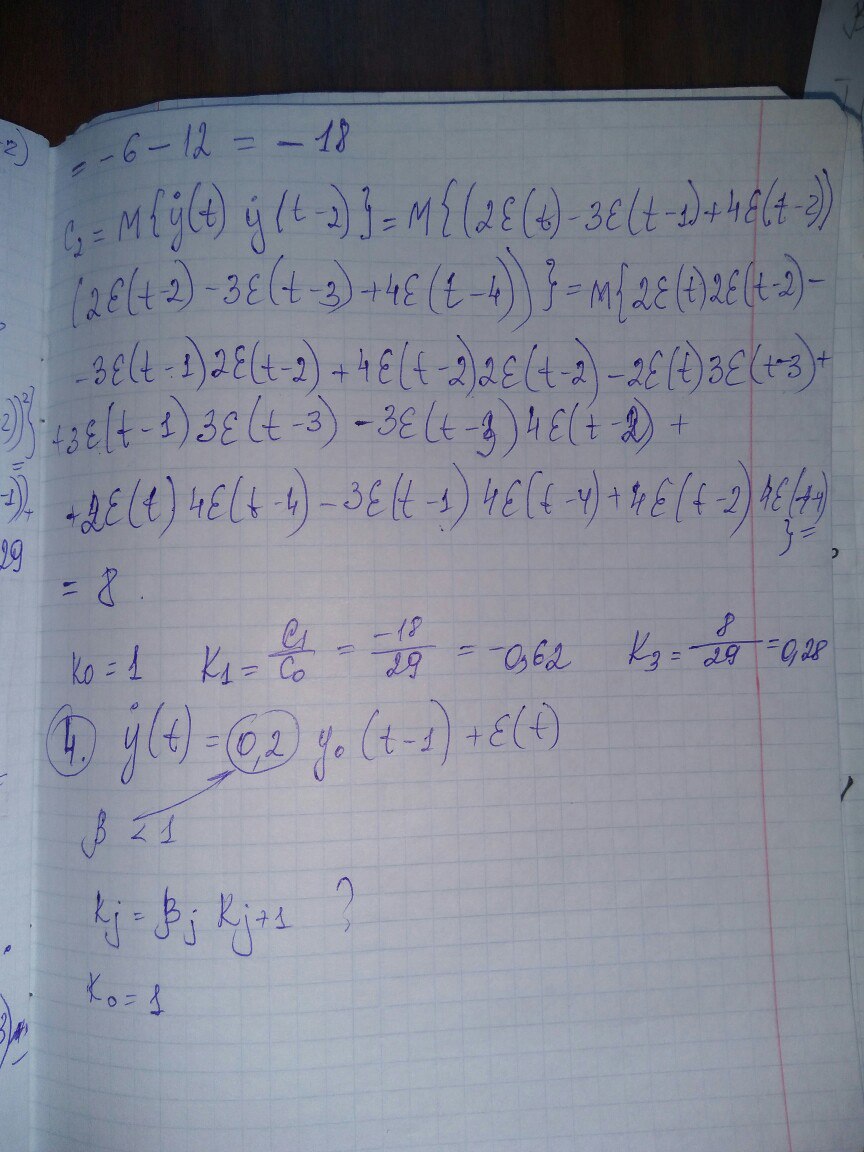 = -6 - 12 = -18
C₂ = M{ẙ(t) ẙ(t-2)} = M{(2ε(t) - 3ε(t-1) + 4ε(t-2))
(2ε(t-2) - 3ε(t-3) + 4ε(t-4))} = M{2ε(t)2ε(t-2) -
- 3ε(t-1)2ε(t-2) + 4ε(t-2)2ε(t-2) - 2ε(t)3ε(t-3) +
+ 3ε(t-1)3ε(t-3) - 3ε(t-3)4ε(t-2) +
+ 2ε(t)4ε(t-4) - 3ε(t-1)4ε(t-4) + 4ε(t-2)4ε(t-4)
} =
= 8.
K₀ = 1 K₁ = C₁/C₀ = -18/29 = -0,62 K₃ = 8/29 = 0,28
4. ẙ(t) = 0,2 y₀(t-1) + ε(t)
β < 1
Kj = βj Kj+1 ?
K₀ = 1